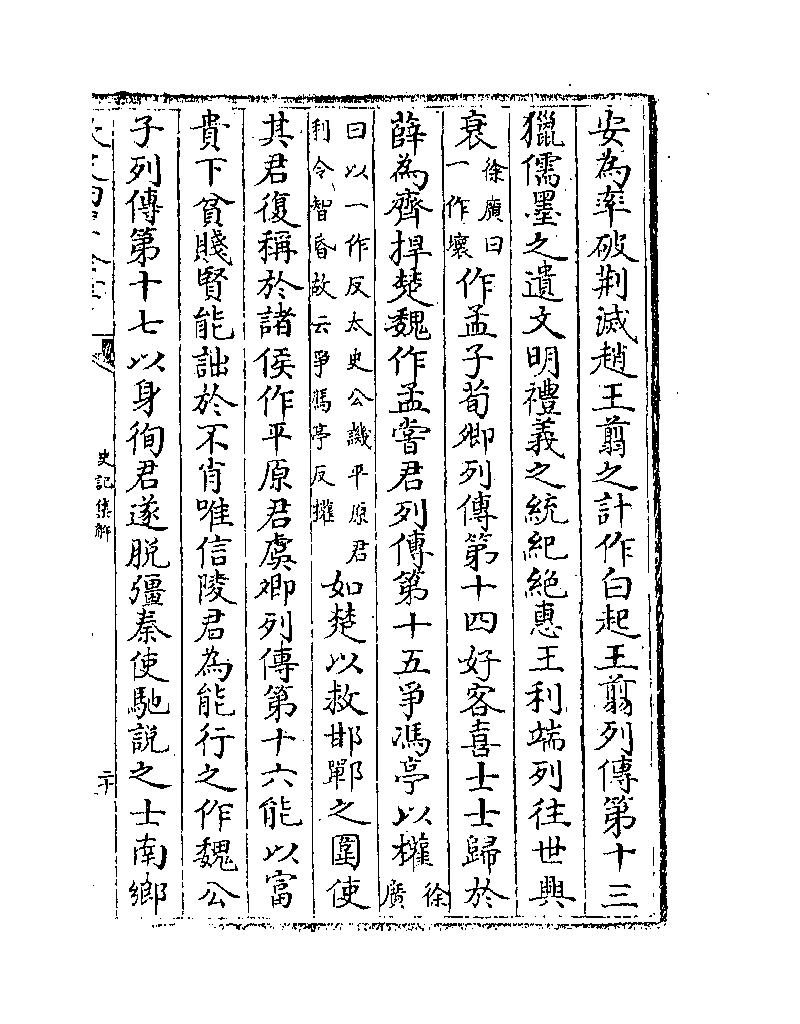 安為率破荆滅趙王翦之計作白起王翦列傳第十三
獵儒墨之遺文明禮義之統紀絶惠王利端列往世興
衰徐廣曰一作壞作孟子荀卿列傳第十四好客喜士士歸於
薛為齊捍楚魏作孟嘗君列傳第十五爭馮亭以權徐廣
曰以一作反太史公譏平原君利令智昏故云爭馮亭反權如楚以救邯鄲之圍使
其君復稱於諸侯作平原君虞卿列傳第十六能以富
貴下貧賤賢能詘於不肖唯信陵君為能行之作魏公
子列傳第十七以身徇君遂脱彊秦使馳説之士南鄉
史記集解
二十